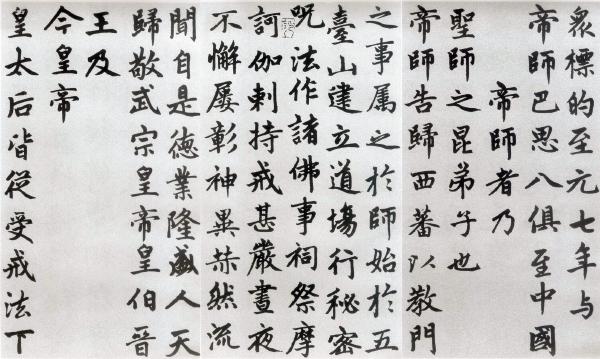 衆標的至元七年与
帝師巴思八俱至中國
帝師者乃
聖師之昆弟子也
帝師告歸西蕃以教門
之事属之於師始於五
臺山建立道場行秘密
呪法作諸佛事祠祭摩
訶伽剌持戒甚嚴晝夜
不懈屢彰神異赫然流
聞自是德業隆盛人天
歸敬武宗皇帝皇伯晋
王及
今皇帝
皇太后皆從受戒法下